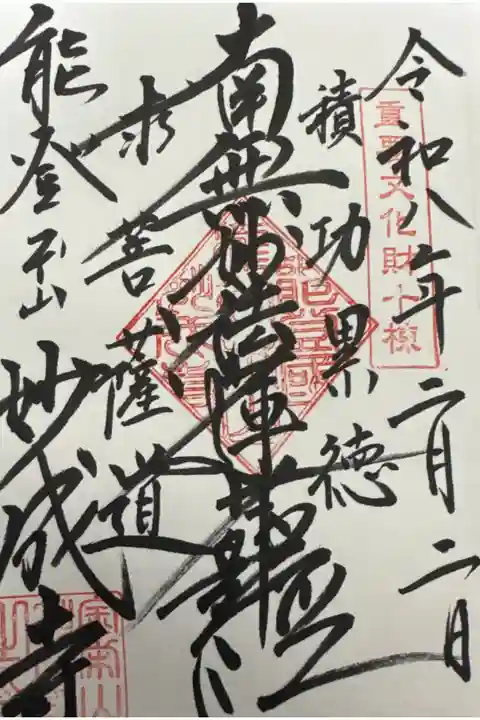 令和八年二月二日
重要文化財十棟
積功累徳
南無妙法蓮華経
求菩薩道
能登本山 妙成寺